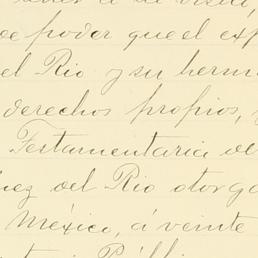 de poder que el exp
el Rio y su herm
derechos propios, y
Testamentaria de
nez del Rio otorga
Mexico, á veinte